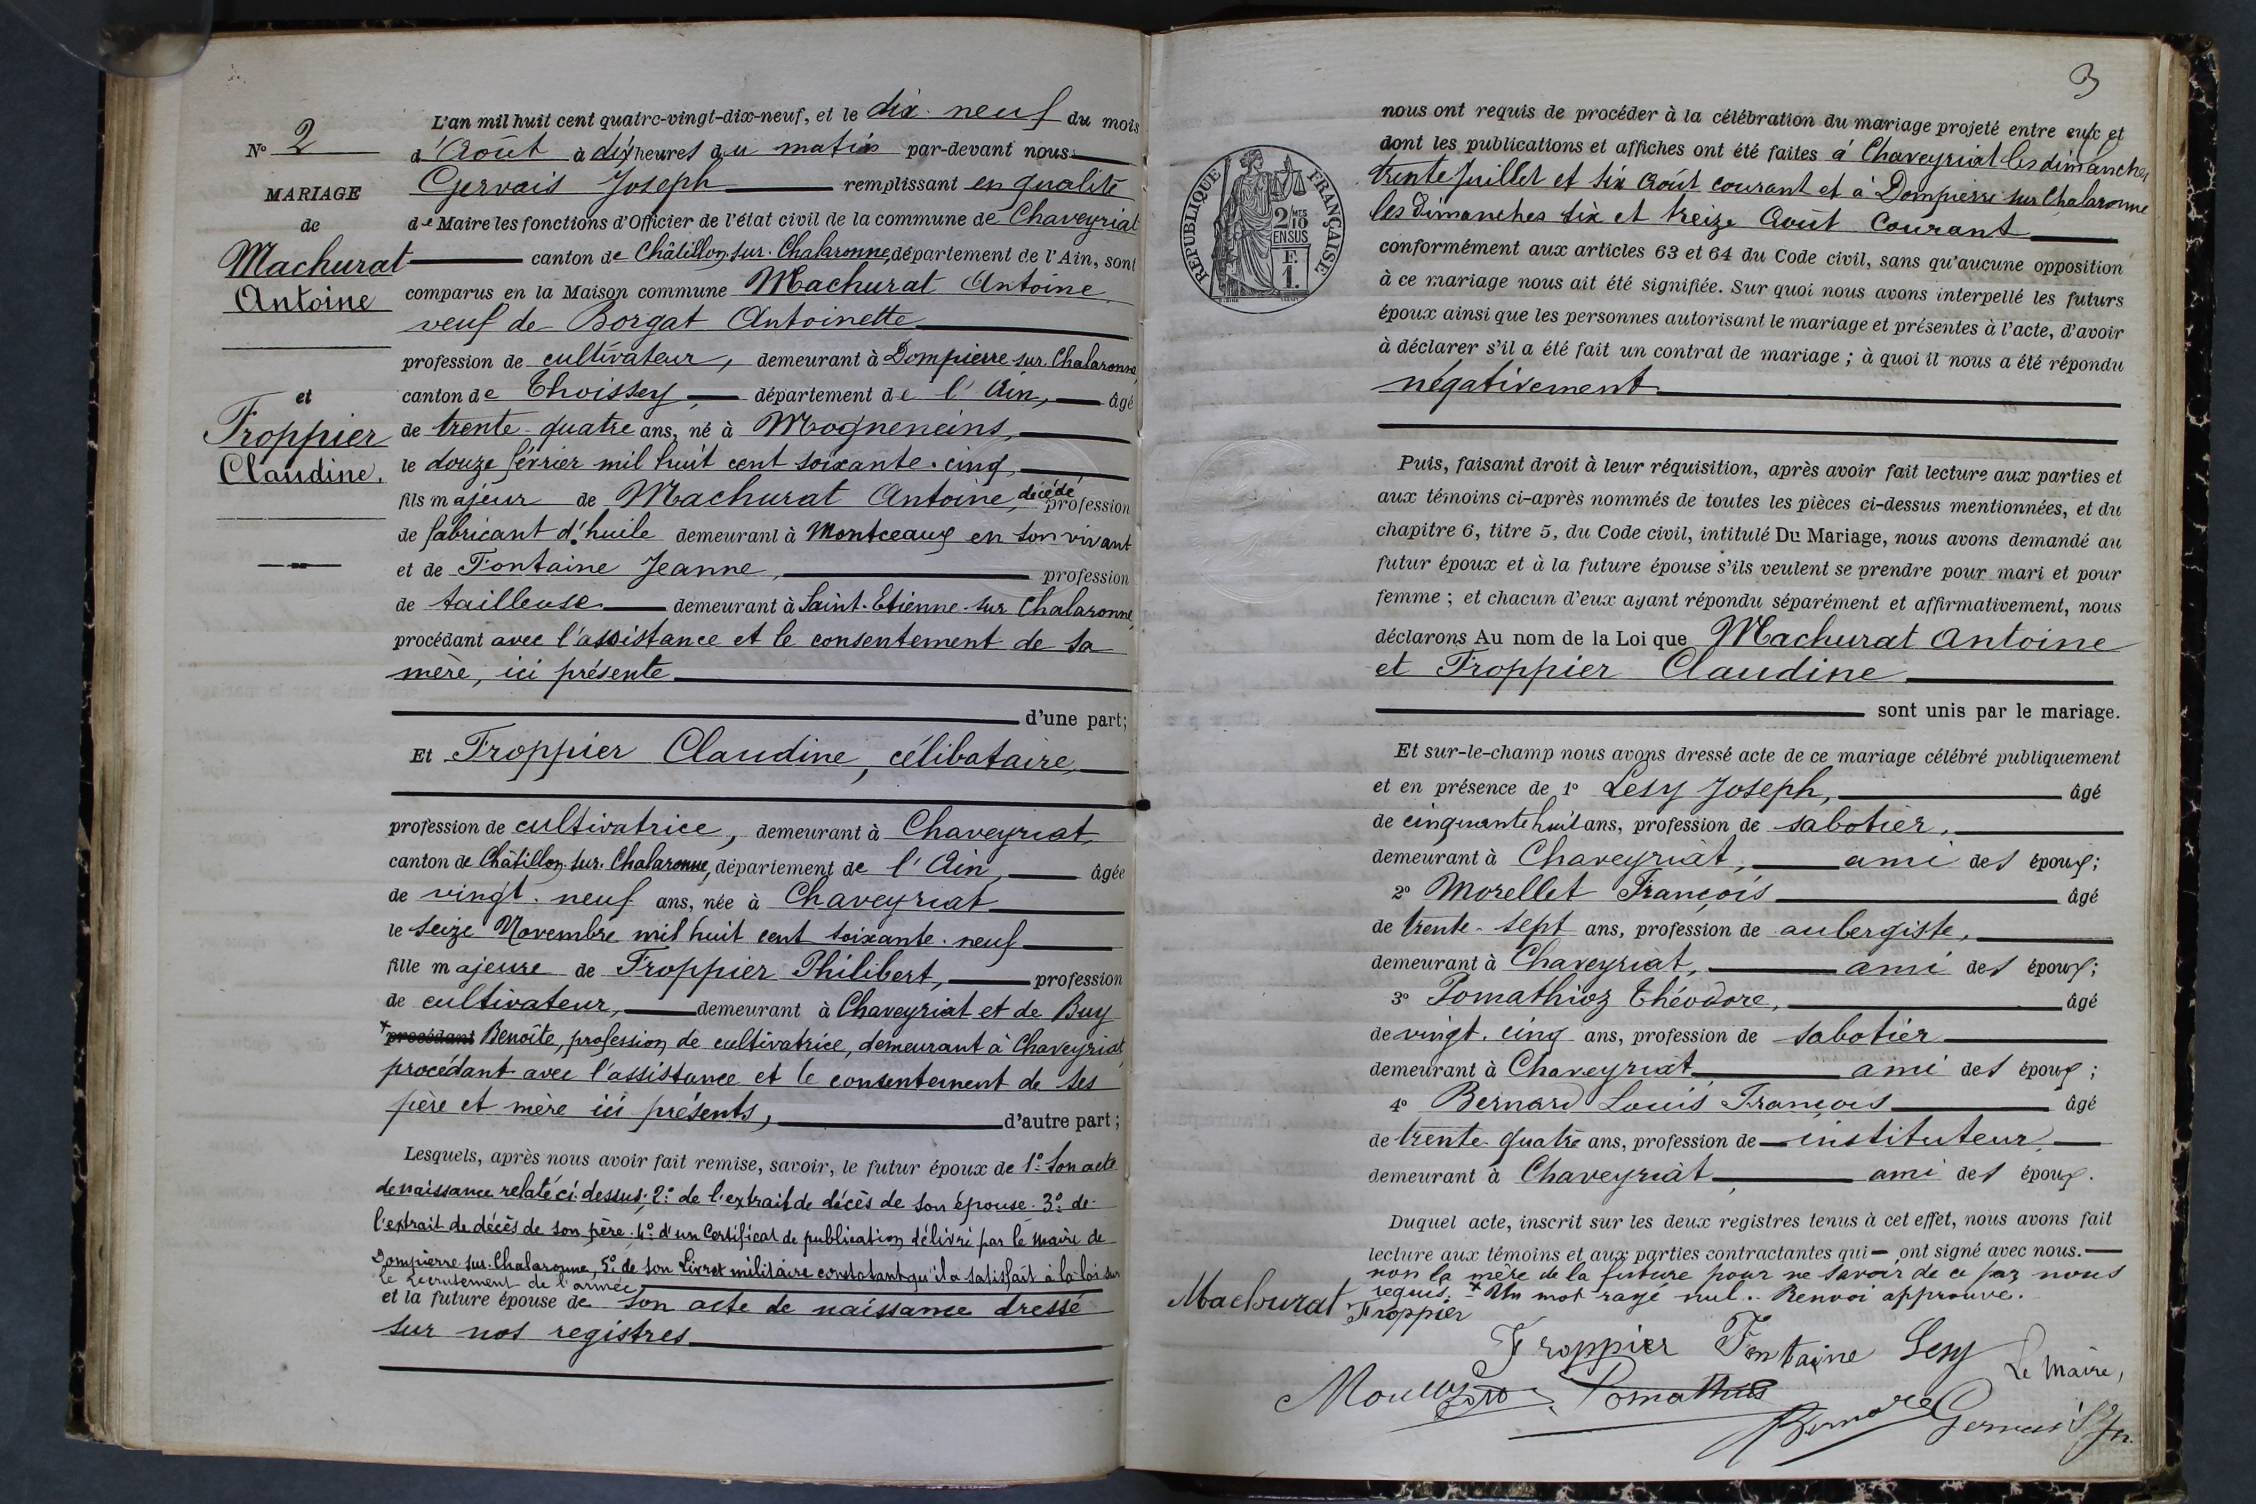 L'an mil huit cent quatre-vingt-dix-neuf, et le dix-neuf du mois
N° 2
d'Août à dix heures du matin par-devant nous
MARIAGE
Gervais Joseph remplissant en qualité
de
de Maire les fonctions d'Officier de l'état civil de la commune de Chaveyriat
Machurat
canton de Châtillon-sur-Chalaronne, département de l'Ain, sont
Antoine
comparus en la Maison commune Machurat Antoine
veuf de Borgat Antoinette
profession de cultivateur, demeurant à Dompierre-sur-Chalaronne,
et
canton de Thoissey, département de l'Ain, âgé
Froppier
de trente-quatre ans, né à Mogneneins,
Claudine.
le douze février mil huit cent soixante-cinq,
fils majeur de Machurat Antoine, décédé profession
de fabricant d'huile demeurant à Montceaux en son vivant
et de Fontaine Jeanne, profession
de tailleuse demeurant à Saint-Etienne-sur Chalaronne,
procédant avec l'assistance et le consentement de sa
mère, ici présente
d'une part;
Et Froppier Claudine, célibataire,
profession de cultivatrice, demeurant à Chaveyriat,
canton de Châtillon-sur-Chalaronne, département de l'Ain, âgée
de vingt-neuf ans, née à Chaveyriat
le seize Novembre mil huit cent soixante-neuf
fille majeure de Froppier Philibert, profession
de cultivateur, demeurant à Chaveyriat et de Buy
+ procédant Benoîte, profession de cultivatrice, demeurant à Chaveyriat,
procédant avec l'assistance et le consentement de ses
père et mère ici présents, d'autre part;
Lesquels, après nous avoir fait remise, savoir, le futur époux de 1° Son acte
de naissance relaté ci-dessus; 2° de l'extrait de décès de son épouse. 3° de
l'extrait de décès de son père. 4° d'un Certificat de publication délivré par le maire de
Dompierre-sur-Chalaronne, 5° de son Livret militaire constatant qu'il a satisfait à la loi sur
le recrutement de l'armée
et la future épouse de son acte de naissance dressé
sur nos registres
3
nous ont requis de procéder à la célébration du mariage projeté entre eux et
dont les publications et affiches ont été faites à Chaveyriat les dimanches
trente Juillet et six Août courant et à Dompierre sur Chalaronne
les Dimanches six et treize Août Courant
RÉPUBLIQUE FRANÇAISE
2/10 MES
EN SUS
F.
1.
conformément aux articles 63 et 64 du Code civil, sans qu'aucune opposition
à ce mariage nous ait été signifiée. Sur quoi nous avons interpellé les futurs
époux ainsi que les personnes autorisant le mariage et présentes à l'acte, d'avoir
à déclarer s'il a été fait un contrat de mariage; à quoi il nous a été répondu
négativement
Puis, faisant droit à leur réquisition, après avoir fait lecture aux parties et
aux témoins ci-après nommés de toutes les pièces ci-dessus mentionnées, et du
chapitre 6, titre 5, du Code civil, intitulé Du Mariage, nous avons demandé au
futur époux et à la future épouse s'ils veulent se prendre pour mari et pour
femme; et chacun d'eux ayant répondu séparément et affirmativement, nous
déclarons Au nom de la Loi que Machurat Antoine
et Froppier Claudine
sont unis par le mariage.
Et sur-le-champ nous avons dressé acte de ce mariage célébré publiquement
et en présence de 1° Lesy Joseph, âgé
de cinquante huit ans, profession de sabotier,
demeurant à Chaveyriat, ami des époux;
2° Morellet François âgé
de trente-sept ans, profession de aubergiste,
demeurant à Chaveyriat, ami des époux;
3° Pomathioz Théodore, âgé
de vingt-cinq ans, profession de sabotier
demeurant à Chaveyriat ami des époux;
4° Bernard Louis François âgé
de trente-quatre ans, profession de instituteur,
demeurant à Chaveyriat ami des époux.
Duquel acte, inscrit sur les deux registres tenus à cet effet, nous avons fait
lecture aux témoins et aux parties contractantes qui ont signé avec nous.
non la mère de la future pour ne savoir de ce par nous
requis. + Un mot rayé nul. Renvoi approuvé.
Machurat Froppier
Froppier Fontaine Lesy
Le Maire,
Pomathios
Bernard Gervais Jh